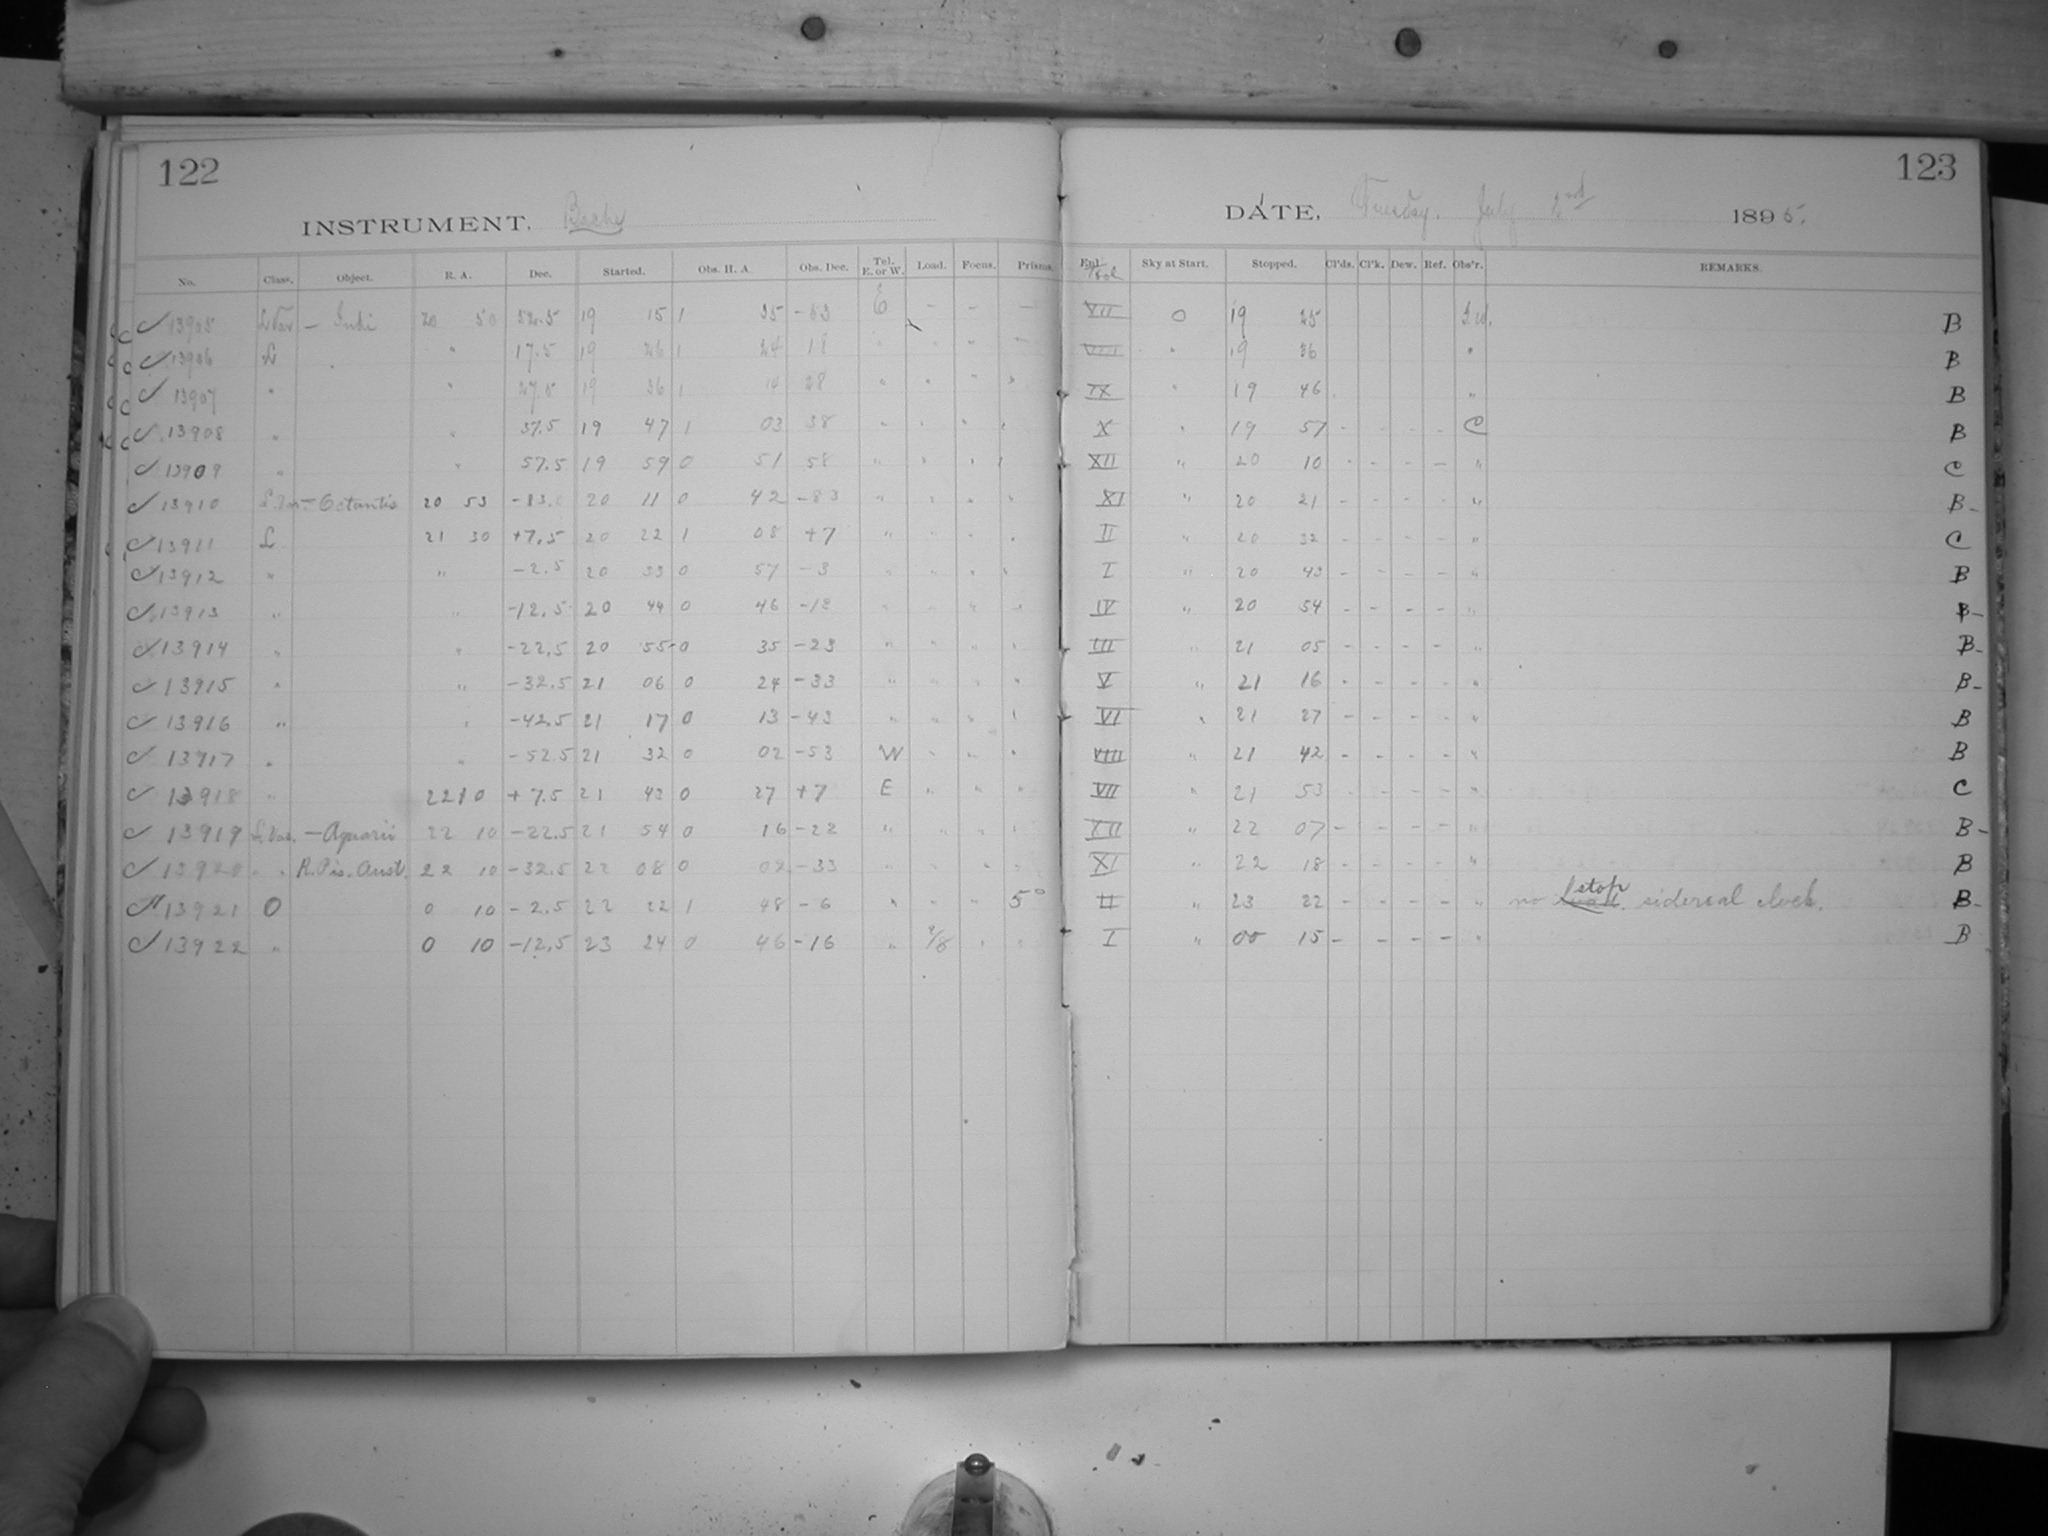 122
INSTRUMENT. Bache
No. Class. Object. R. A. Dec. Started. Obs. H. A. Obs. Dec. Tel. E. or W. Load. Focus. Prisms.
13905 L Var — Indi 20 50 52.5 19 15 1 35 -53 E - - -
13906 L " 17.5 19 26 1 24 18 " " "
13907 " " 27.5 19 36 1 14 28 " " " "
13908 " " 37.5 19 47 1 03 38 " " " "
13909 " " 57.5 19 59 0 51 58 " " " "
13910 L. Var — Octantis 20 53 -83.0 20 11 0 42 -83 " " " "
13911 L 21 30 +7.5 20 22 1 08 +7 " " " "
13912 " " -2.5 20 33 0 57 -3 " " " "
13913 " " -12.5 20 44 0 46 -12 " " " "
13914 " " -22.5 20 55 0 35 -23 " " " "
13915 " " -32.5 21 06 0 24 -33 " " " "
13916 " " -42.5 21 17 0 13 -43 " " " "
13917 " " -52.5 21 32 0 02 -53 W " " "
13918 " 22 10 +7.5 21 43 0 27 +7 E " " "
13919 L. Var. — Aquarii 22 10 -22.5 21 54 0 16 -22 " " " "
13920 " " R. Pis. Aust. 22 10 -32.5 22 08 0 02 -33 " " " "
13921 O 0 10 -2.5 22 22 1 48 -6 " " " 5°
13922 " 0 10 -12.5 23 24 0 46 -16 " " "
123
DATE, Tuesday. July 2nd 1895.
Sky at Start. Stopped. Cl'ds. Cl'k. Dew. Ref. Obs'r. REMARKS.
VII 0 19 25 B
VIII " 19 36 " B
IX " 19 46 " B
X " 19 57 - - - - C B
XII " 20 10 - - - - " C
XI " 20 21 - - - - " B-
II " 20 32 - - - - " C
I " 20 43 - - - - " B
IV " 20 54 - - - - " B-
III " 21 05 - - - - " B-
V " 21 16 - - - - " B-
VI " 21 27 - - - - " B
VIII " 21 42 - - - - " B
VII " 21 53 - - - - " C
XII " 22 07 - - - - " B-
XI " 22 18 - - - - " B
II " 23 22 - - - - " no stop sidereal clock. B-
I " 00 15 - - - - " B